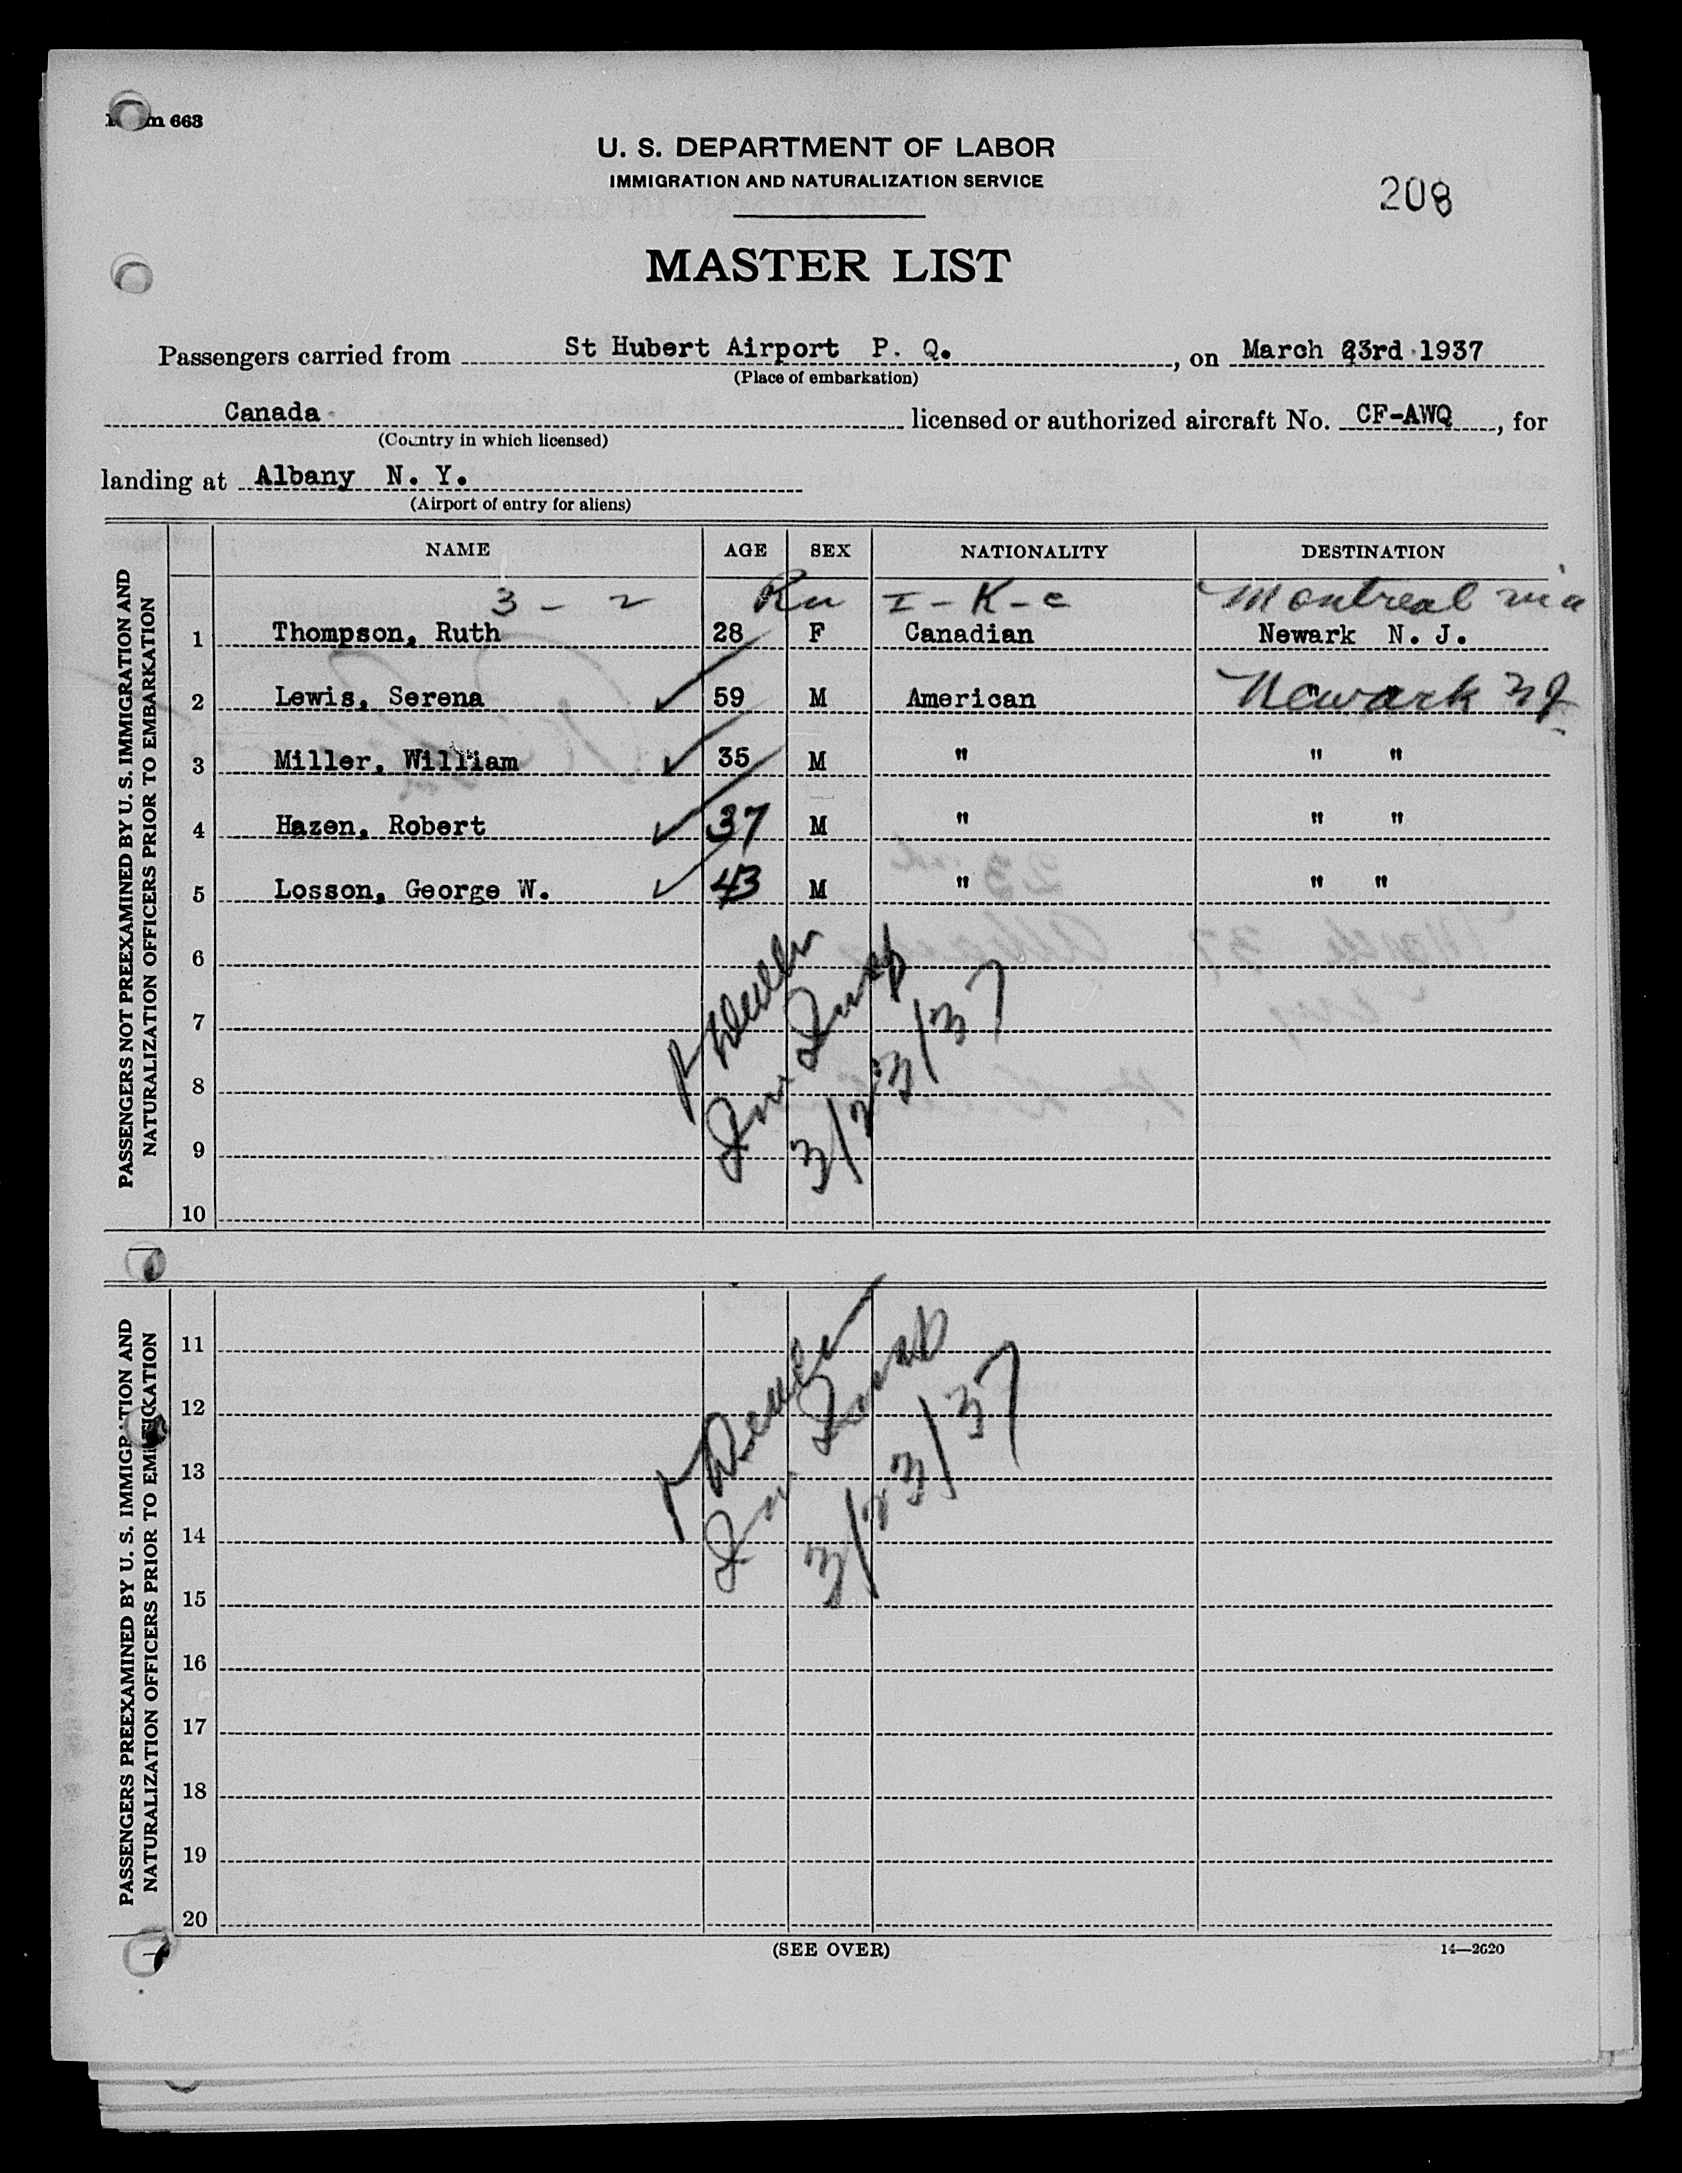 Form 663
U. S. DEPARTMENT OF LABOR
IMMIGRATION AND NATURALIZATION SERVICE
208
MASTER LIST
Passengers carried from St Hubert Airport P. Q. , on March 23rd 1937
(Place of embarkation)
Canada. licensed or authorized aircraft No. CF-AWQ , for
(Country in which licensed)
landing at Albany N. Y.
(Airport of entry for aliens)
NAME AGE SEX NATIONALITY DESTINATION
3 - 2 I - K - c Montreal via
1 Thompson, Ruth 28 F Canadian Newark N. J.
2 Lewis, Serena ✓ 59 M American " " Newark NJ
3 Miller, William ✓ 35 M " " "
4 Hazen, Robert ✓ 37 M " " "
5 Losson, George W. ✓ 43 M " " "
6
7
8
9
10
PASSENGERS NOT PREEXAMINED BY U. S. IMMIGRATION AND
NATURALIZATION OFFICERS PRIOR TO EMBARKATION
Imm Insp
3/23/37
11
12
13
14
15
16
17
18
19
20
PASSENGERS PREEXAMINED BY U. S. IMMIGRATION AND
NATURALIZATION OFFICERS PRIOR TO EMBARKATION
Imm Insp
3/23/37
(SEE OVER)
14—2620